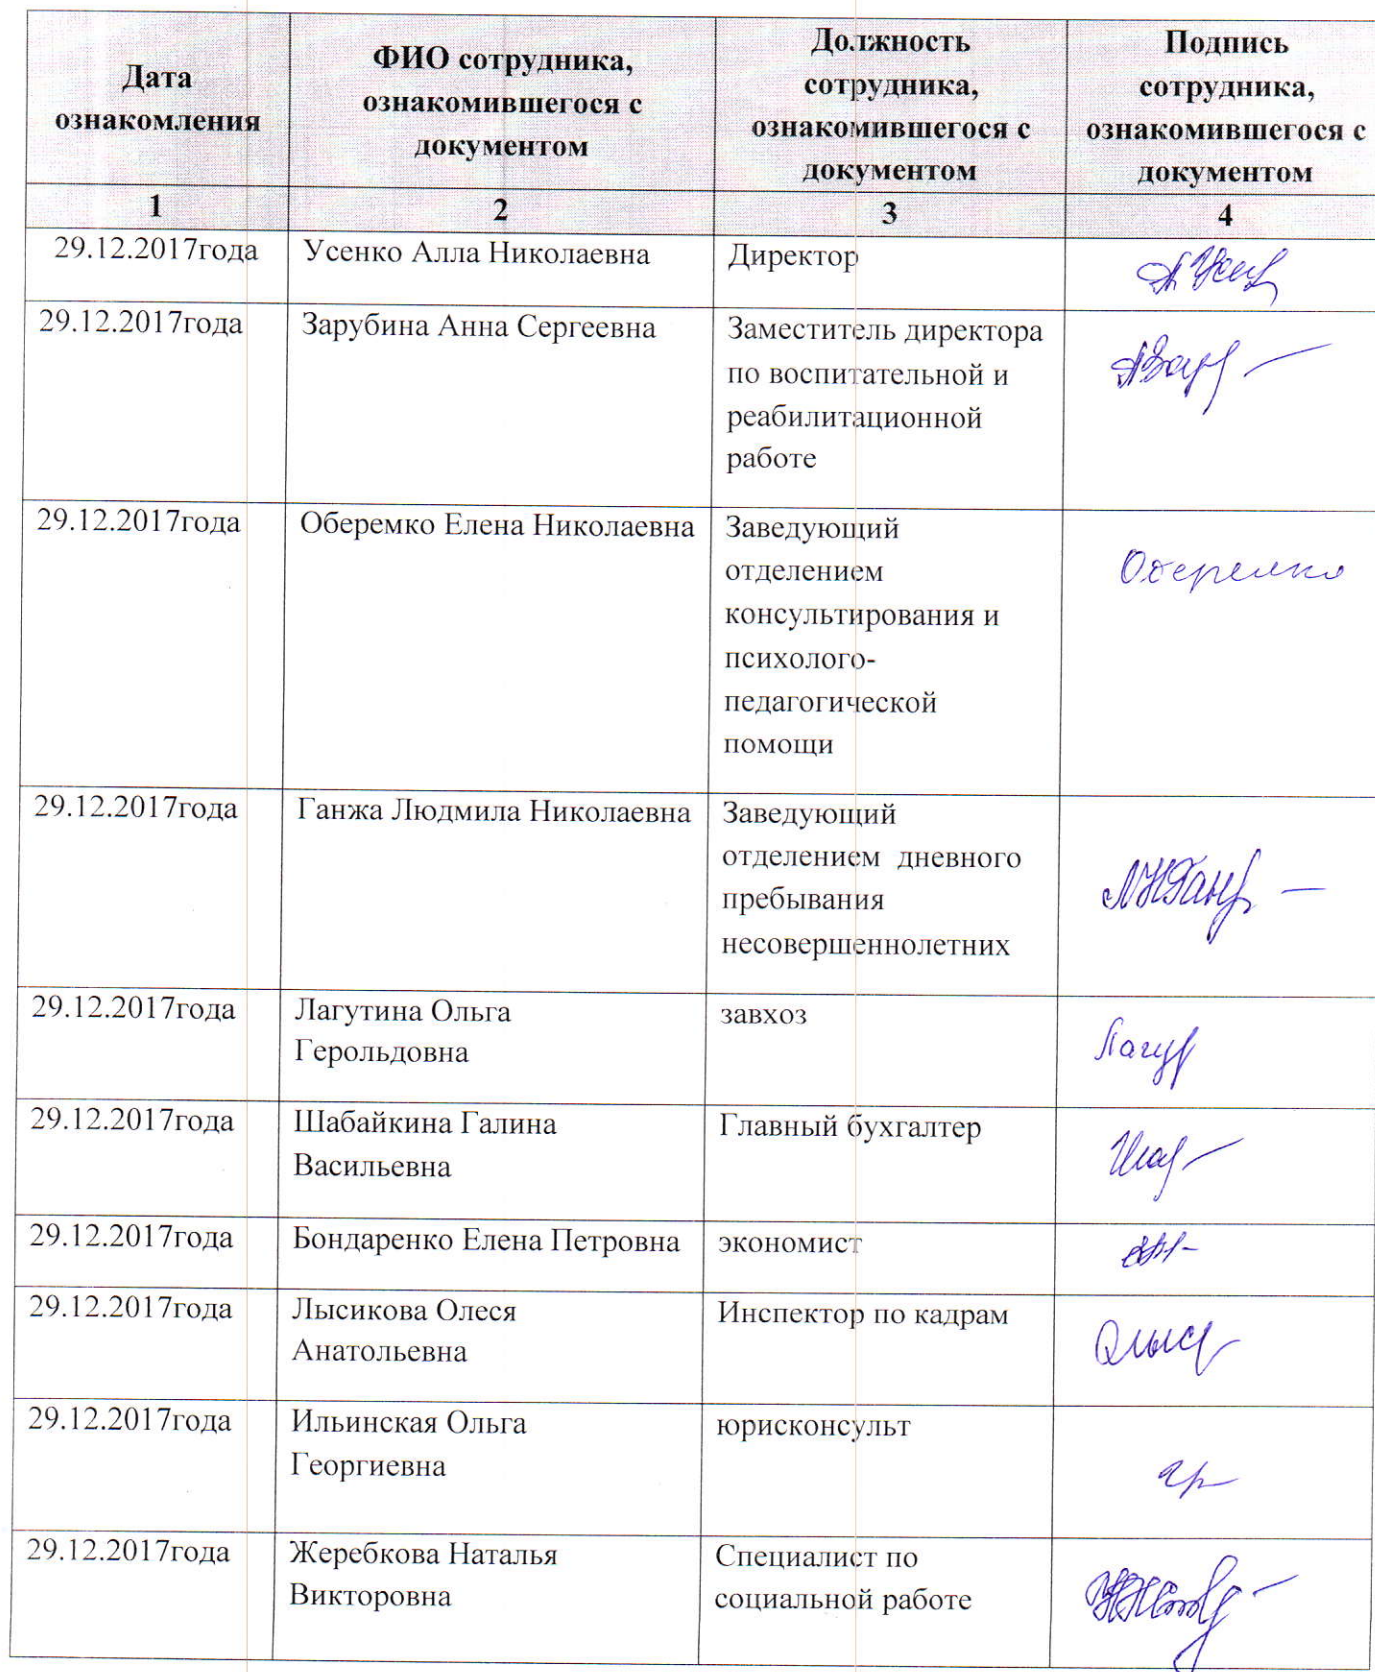 Дата
ознакомления
ФИО сотрудника,
ознакомившегося с
документом
Должность
сотрудника,
ознакомившегося с
документом
Подпись
сотрудника,
ознакомившегося с
документом
1
2
3
4
29.12.2017года
Усенко Алла Николаевна
Директор
29.12.2017года
Зарубина Анна Сергеевна
Заместитель директора
по воспитательной и
реабилитационной
работе
29.12.2017года
Оберемко Елена Николаевна
Заведующий
отделением
консультирования и
психолого-
педагогической
помощи
Оберемко
29.12.2017года
Ганжа Людмила Николаевна
Заведующий
отделением дневного
пребывания
несовершеннолетних
29.12.2017года
Лагутина Ольга
Герольдовна
завхоз
29.12.2017года
Шабайкина Галина
Васильевна
Главный бухгалтер
29.12.2017года
Бондаренко Елена Петровна
экономист
29.12.2017года
Лысикова Олеся
Анатольевна
Инспектор по кадрам
29.12.2017года
Ильинская Ольга
Георгиевна
юрисконсульт
29.12.2017года
Жеребкова Наталья
Викторовна
Специалист по
социальной работе